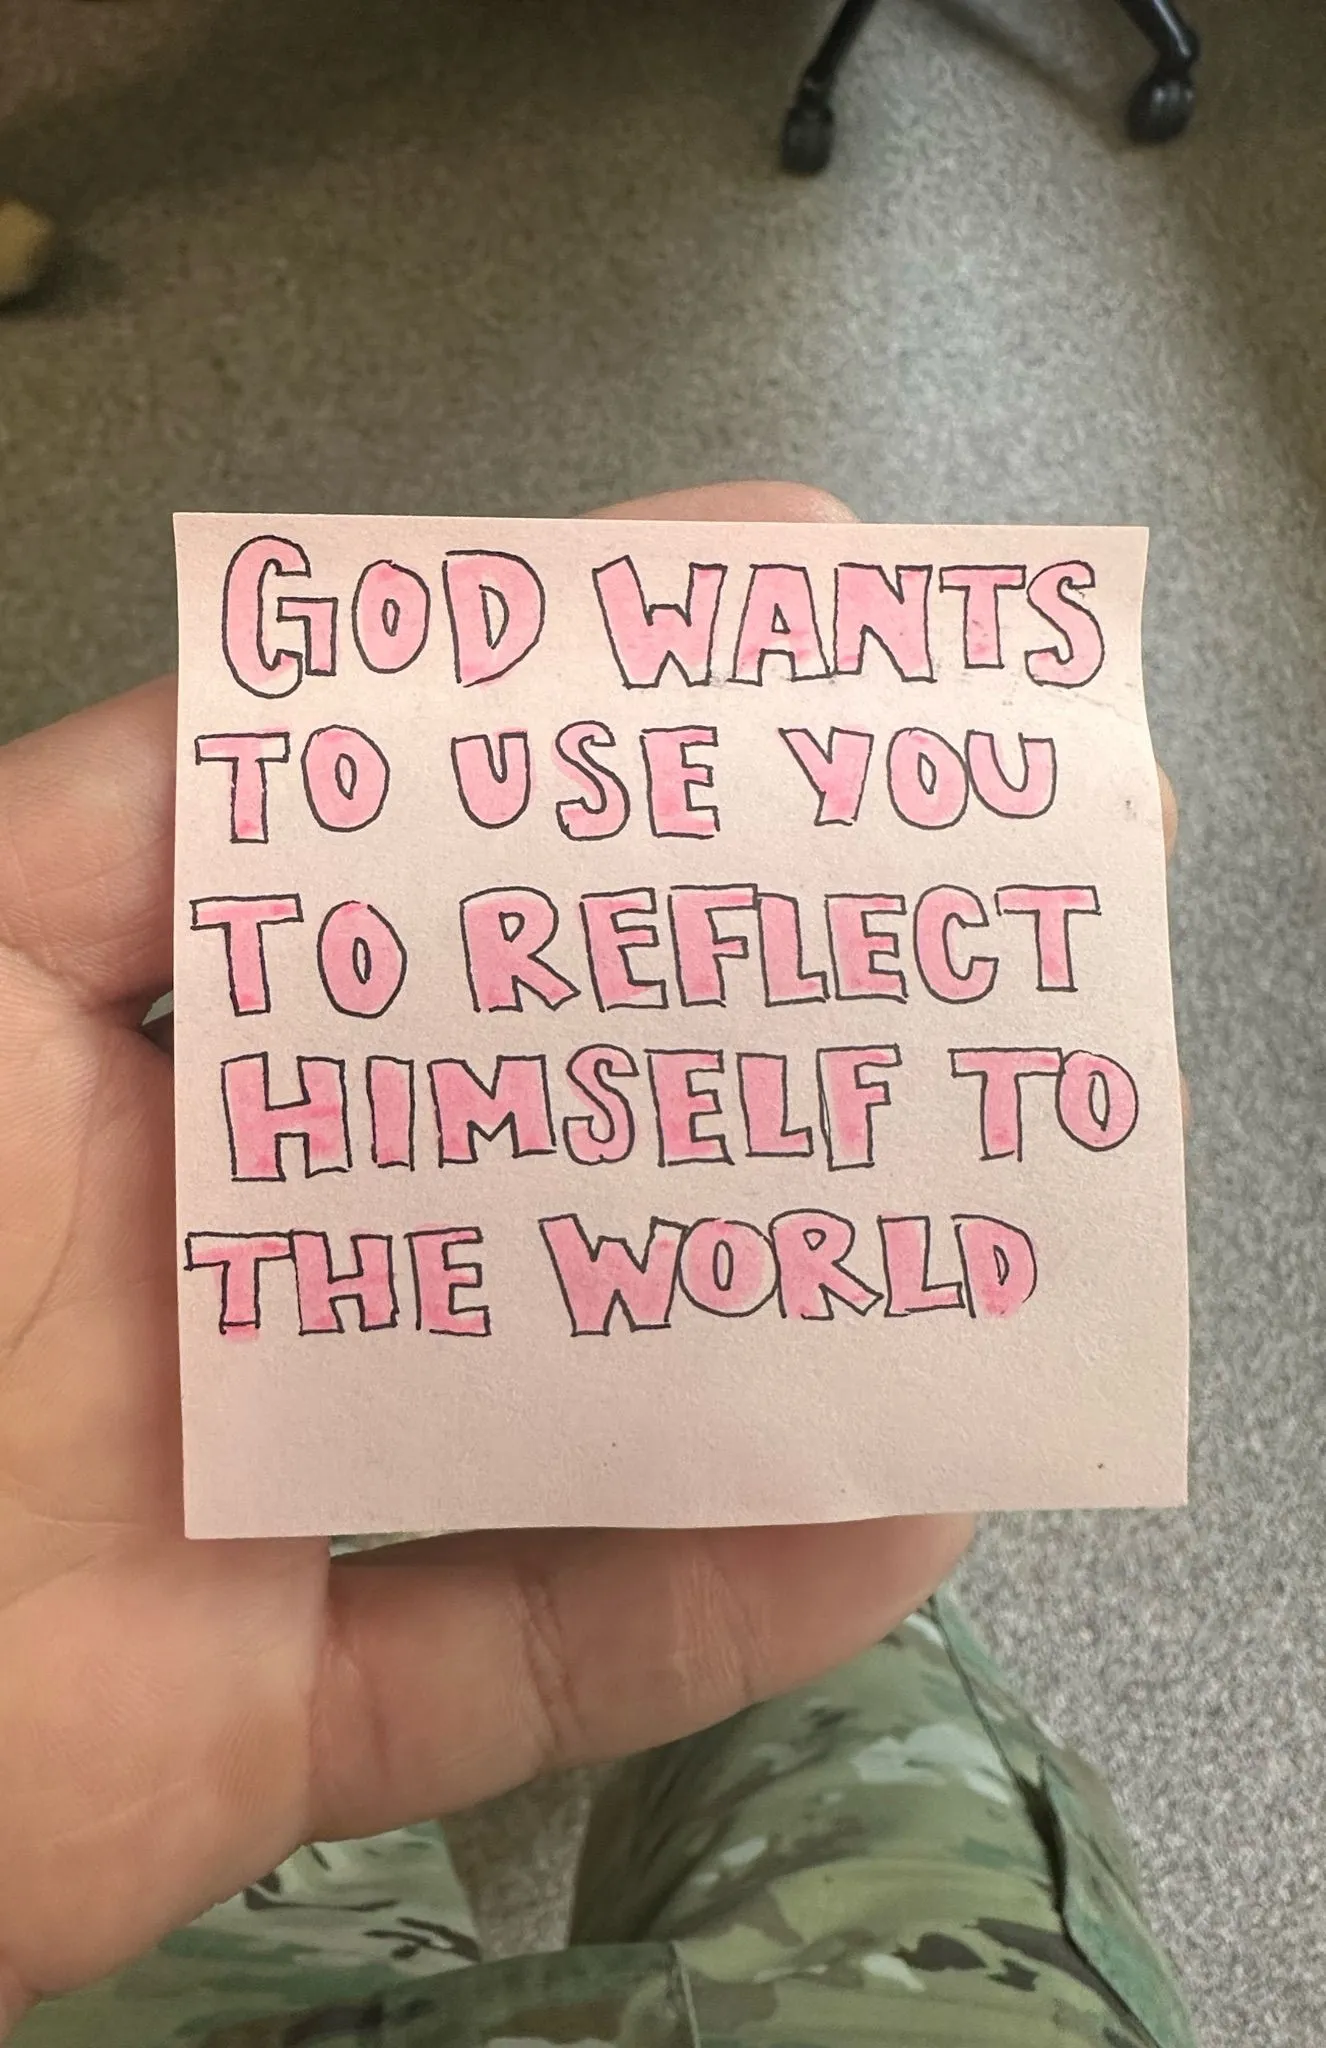 GOD WANTS
TO USE YOU
TO REFLECT
HIMSELF TO
THE WORLD